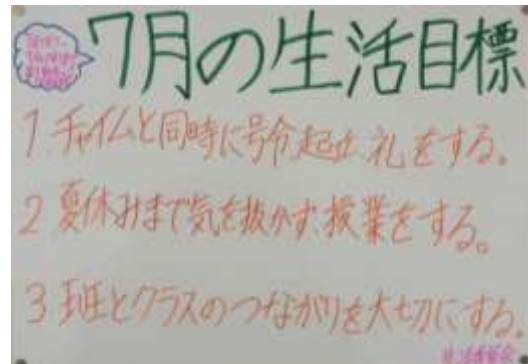 7月の生活目標
1. チャイムと同時に号令、起立、礼をする。
2 夏休みまで気を抜かず授業をする。
3 班とクラスのつながりを大切にする。